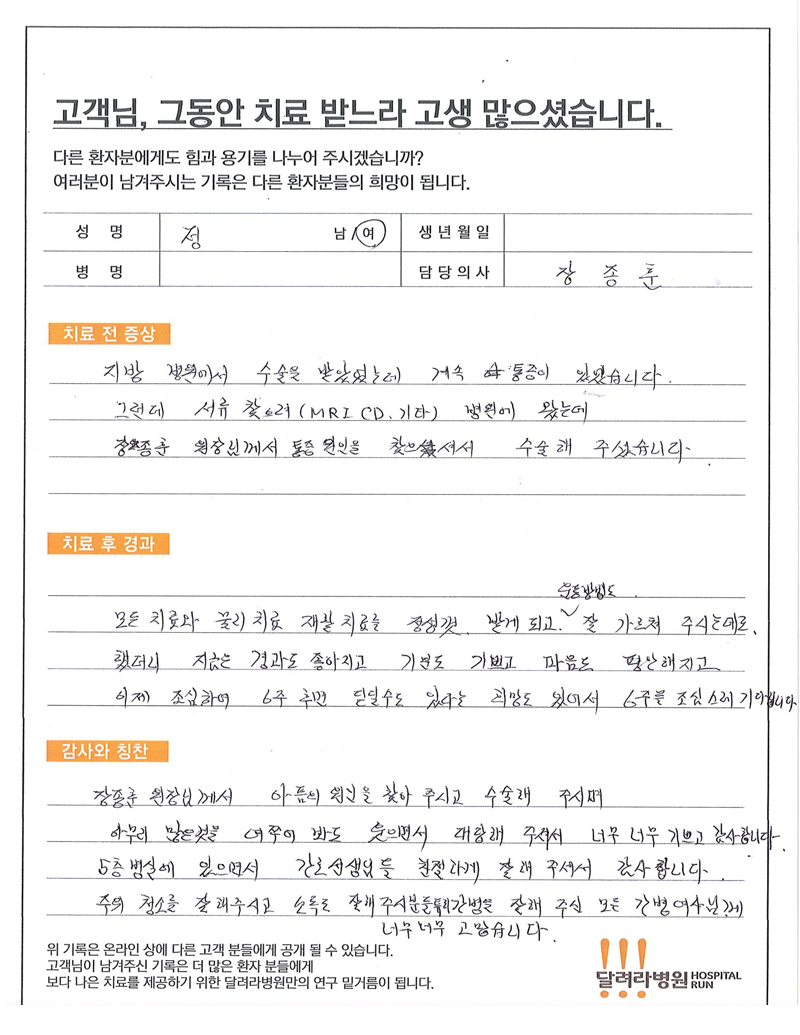 고객님, 그동안 치료 받느라 고생 많으셨습니다.
다른 환자분에게도 힘과 용기를 나누어 주시겠습니까?
여러분이 남겨주시는 기록은 다른 환자분들의 희망이 됩니다.
성 명 정 남/여 생년월일
병 명 담당의사 장 종 훈
치료 전 증상
지방 병원에서 수술을 받았었는데 계속 통증이 있었습니다.
그런데 서류 찾으러 (MRI CD, 기타) 병원에 왔는데
장종훈 원장님께서 통증 원인을 찾으셔서 수술해 주셨습니다.
치료 후 경과
운동방법도
모든 치료와 물리치료 재활치료를 정성껏 받게 되고. 잘 가르쳐 주시는데로.
했더니 지금은 경과도 좋아지고 기분도 기쁘고 마음도 편안해지고
이제 조심하며 6주 후면 수도 있다는 희망도 있어서 6주를 조심스레
감사와 칭찬
장종훈 원장님께서 아픔의 원인을 찾아 주시고 수술해 주시며
아무리 많은것을 여쭈어 봐도 웃으면서 대답해 주셔서 너무 너무 기쁘고 감사합니다.
5층 병실에 있으면서 간호선생님들 친절하게 잘 해 주셔서 감사합니다.
청소를 잘해주시고 소독도 잘해 주시분들 간병을 잘해 주신 모든 간병여사님께
너무너무 고맙습니다.
위 기록은 온라인 상에 다른 고객 분들에게 공개 될 수 있습니다.
고객님이 남겨주신 기록은 더 많은 환자 분들에게
보다 나은 치료를 제공하기 위한 달려라병원만의 연구 밑거름이 됩니다.
!!!
달려라병원 HOSPITAL RUN